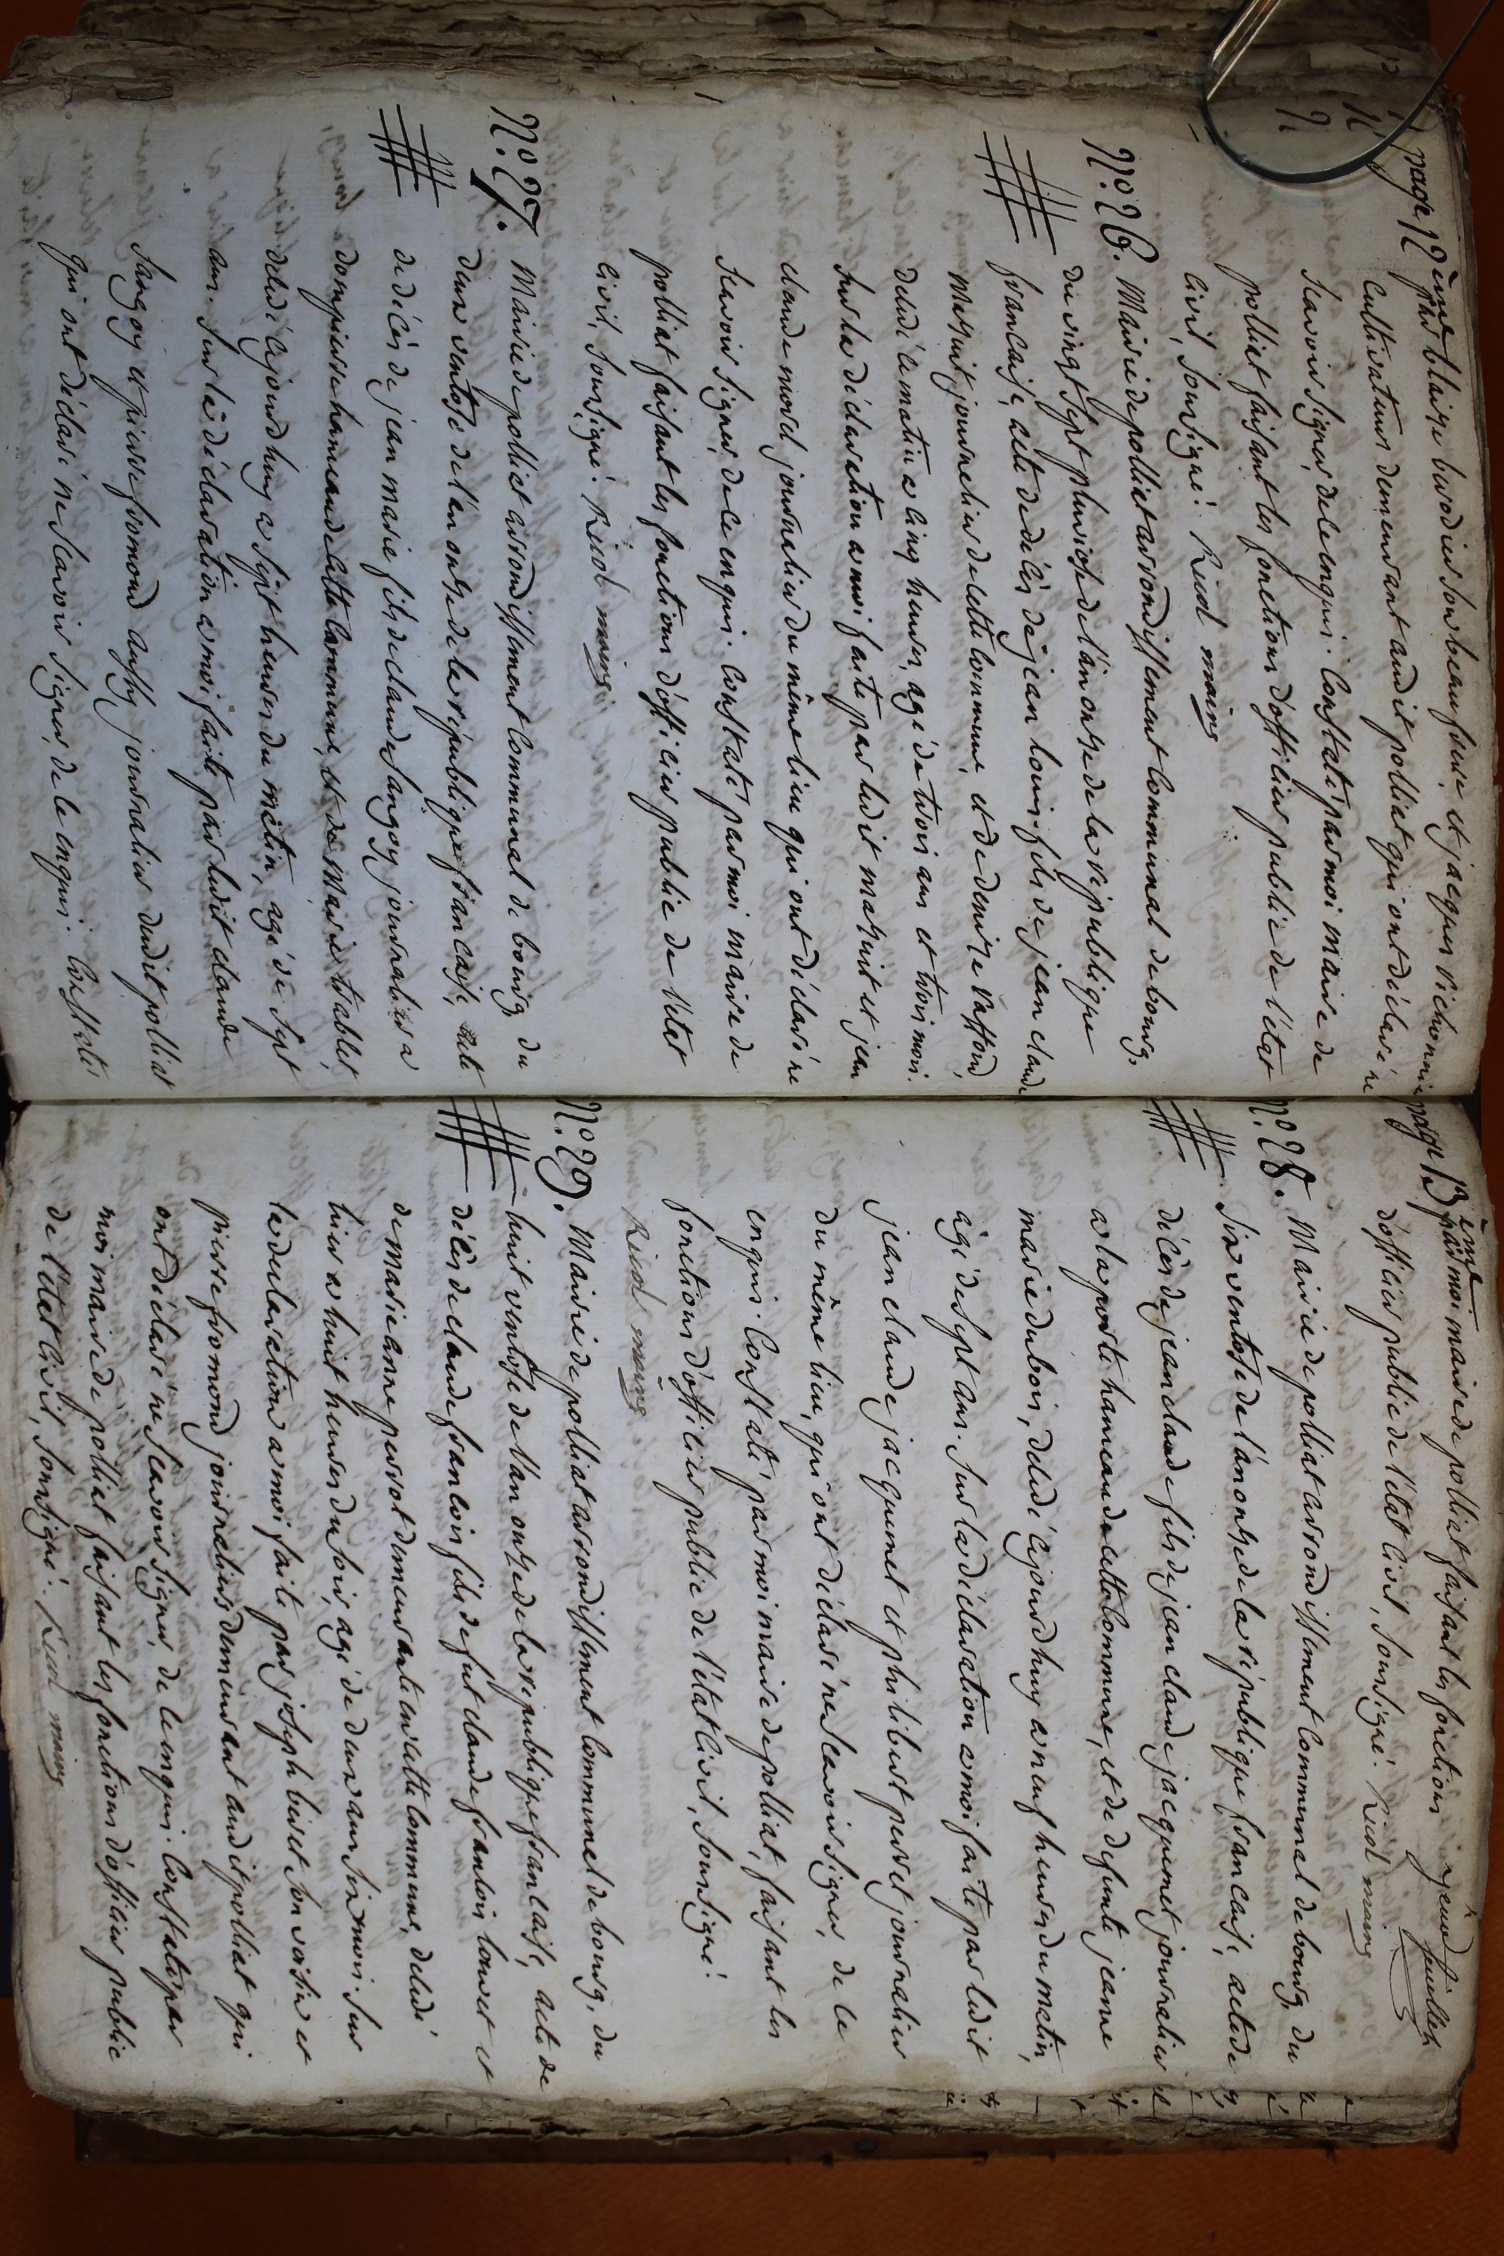 page 12ème
par blaize brodier son beau frere, et jacques vichonnie
cultivateurs demeurant audit polliat qui ont déclaré ne
scavoir signer, de ce enquis. Constaté par moi maire de
polliat faisant les fonctions d'officier public de l'état
civil, soussigné. Ricol maire
N.º 26. Mairie de polliat arrondissement communal de bourg,
du vingt sept pluviose de l'an onze de la république
francaise, acte de décès de jean louis fils de jean claude
mazuit journalier de cette commune, et de denize vaffond,
décédé ce matin a cinq heures, agé de trois ans et trois mois.
sur la déclaration a moi faite par ledit mazuit et jean
claude morel journalier du même lieu qui ont déclaré ne
scavoir signer, de ce enquis. Constaté par moi maire de
polliat faisant les fonctions d'officier public de l'état
civil, soussigné. Ricol maire
N.º 27. Mairie de polliat arrondissement communal de bourg, du
deux ventose de l'an onze de la république francaise, acte
de décès de jean marie fils de claude sangoy journalier a
dompierre hameau de cette commune, et de Marie tisablet,
décédé ce jourd'huy a sept heures du matin, agé de sept
ans. sur la déclaration a moi faite par ledit claude
sangoy et pierre fromond aussy journalier dudit polliat
qui ont déclaré ne scavoir signer, de ce enquis. Constaté
page 13ème
par moi maire de polliat faisant les fonctions
d'officier public de l'état civil, soussigné. Ricol maire
feuillet
N.º 28. Mairie de polliat arrondissement communal de bourg, du
six ventose de l'an onze de la république francaise, acte de
décès de jean claude fils de jean claude jacquemet journalier
a la poste hameau de cette commune, et de defunte jeanne
marie dubois, décédé ce jourd'huy a neuf heures du matin,
agé de sept ans. sur la déclaration a moi faite par ledit
jean claude jacquemet et philibert perret journalier
du même lieu, qui ont déclaré ne scavoir signer, de ce
enquis. Constaté par moi maire de polliat, faisant les
fonctions d'officier public de l'état civil, soussigné.
Ricol maire
N.º 29. Mairie de polliat arrondissement communal de bourg, du
huit ventose de l'an onze de la republique francaise, acte de
décès de claude francois fils de feut claude francois louet et
de Marie anne perrot demeurante en cette commune, décédé
hier a huit heures du soir, agé de deux ans six mois. sur
la déclaration a moi faite par joseph beret son voisin et
pierre fromond journaliers demeurant audit polliat qui
ont déclaré ne scavoir signer, de ce enquis. Constaté par
moi maire de polliat faisant les fonctions d'officier public
de l'état civil, soussigné. Ricol maire